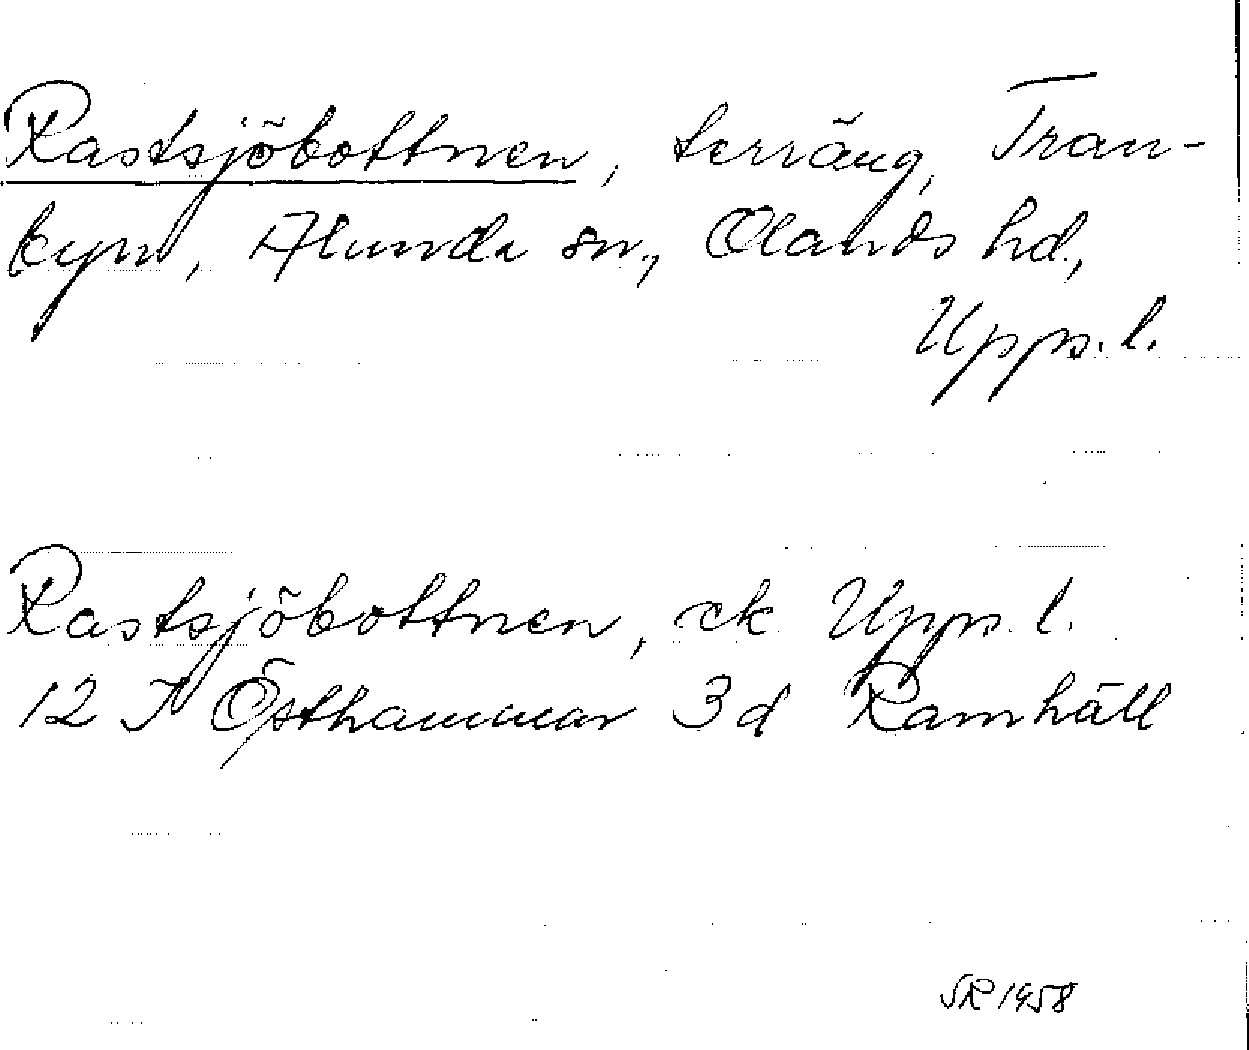 Rastsjöbottnen, terräng, Tran-
byn, Alunda sn, Olands hd,
Upps. l.
Rastsjöbottnen, ek Upps. l.
12 I Östhammar 3d Ramhäll
SR 1958